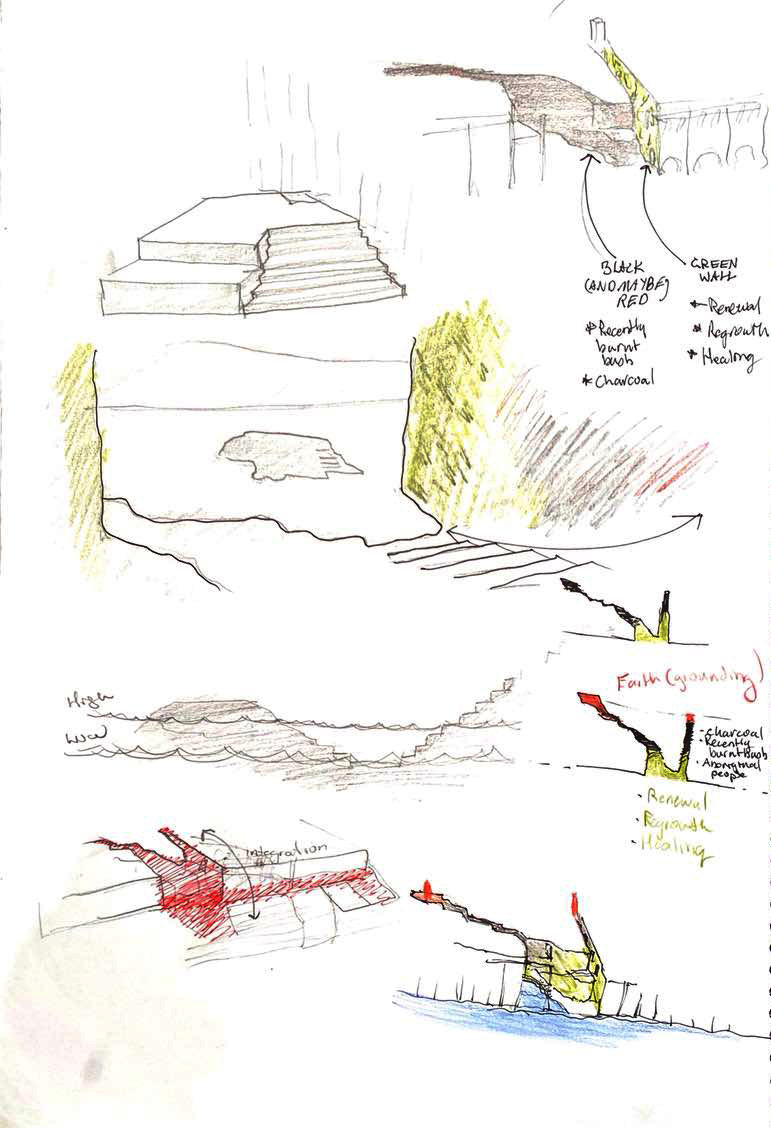 BLACK
(AND MAYBE)
RED
* Recently
burnt
bush
* Charcoal
GREEN
WALL
* Renewal
* Regrowth
* Healing
High
Low
Earth (grounding)
· Charcoal
· Recently
burnt bush
· Aboriginal
people
· Renewal
· Regrowth
· Healing
integration